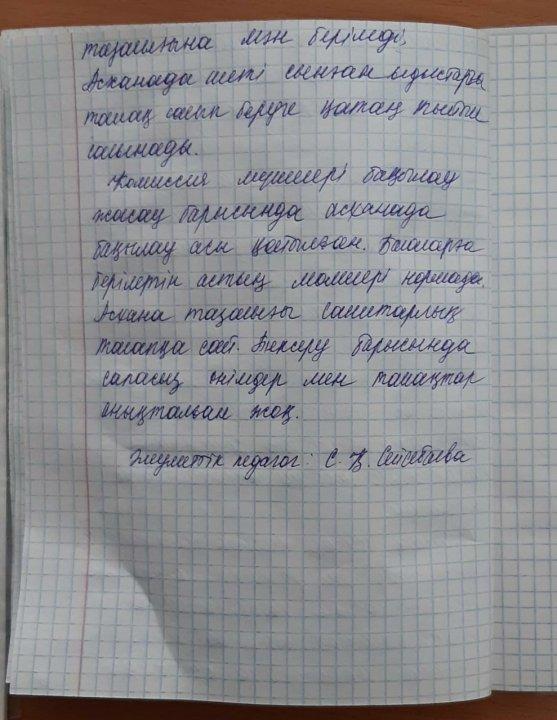 тазалығына мән берілмеді,
Асханада шеті сынған ыдыстарға
тамақ салып беруге қатаң тыйым
салынады.
Комиссия мүшелері бақылау
жасау барысында асханада
бақылау асы қойылған. Балаларға
берілетін астың мөлшері нормада.
Асхана тазалығы санитарлық
талапқа сай. Тексеру барысында
сапасыз өнімдер мен тамақтар
анықталған жоқ.
Әлеуметтік педагог: С. Қ. Сейсебаева